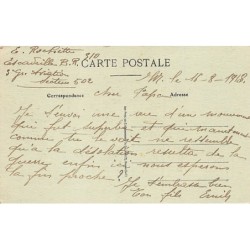 E. Rochette
Escadrille B.R. 210
3e Gr. Aviation
Secteur 502
CARTE POSTALE
Correspondance
Adresse
le 18-8-1918.
Mon Papa
Je t'envoie une vue d'un monument
qui fut superbe et qui maintenant
comme tu le vois ne ressemble
qu'à la désolation, resultat de la
guerre enfin ici nous esperons
la fin proche
Je t'embrasse bien
ton fils Emile